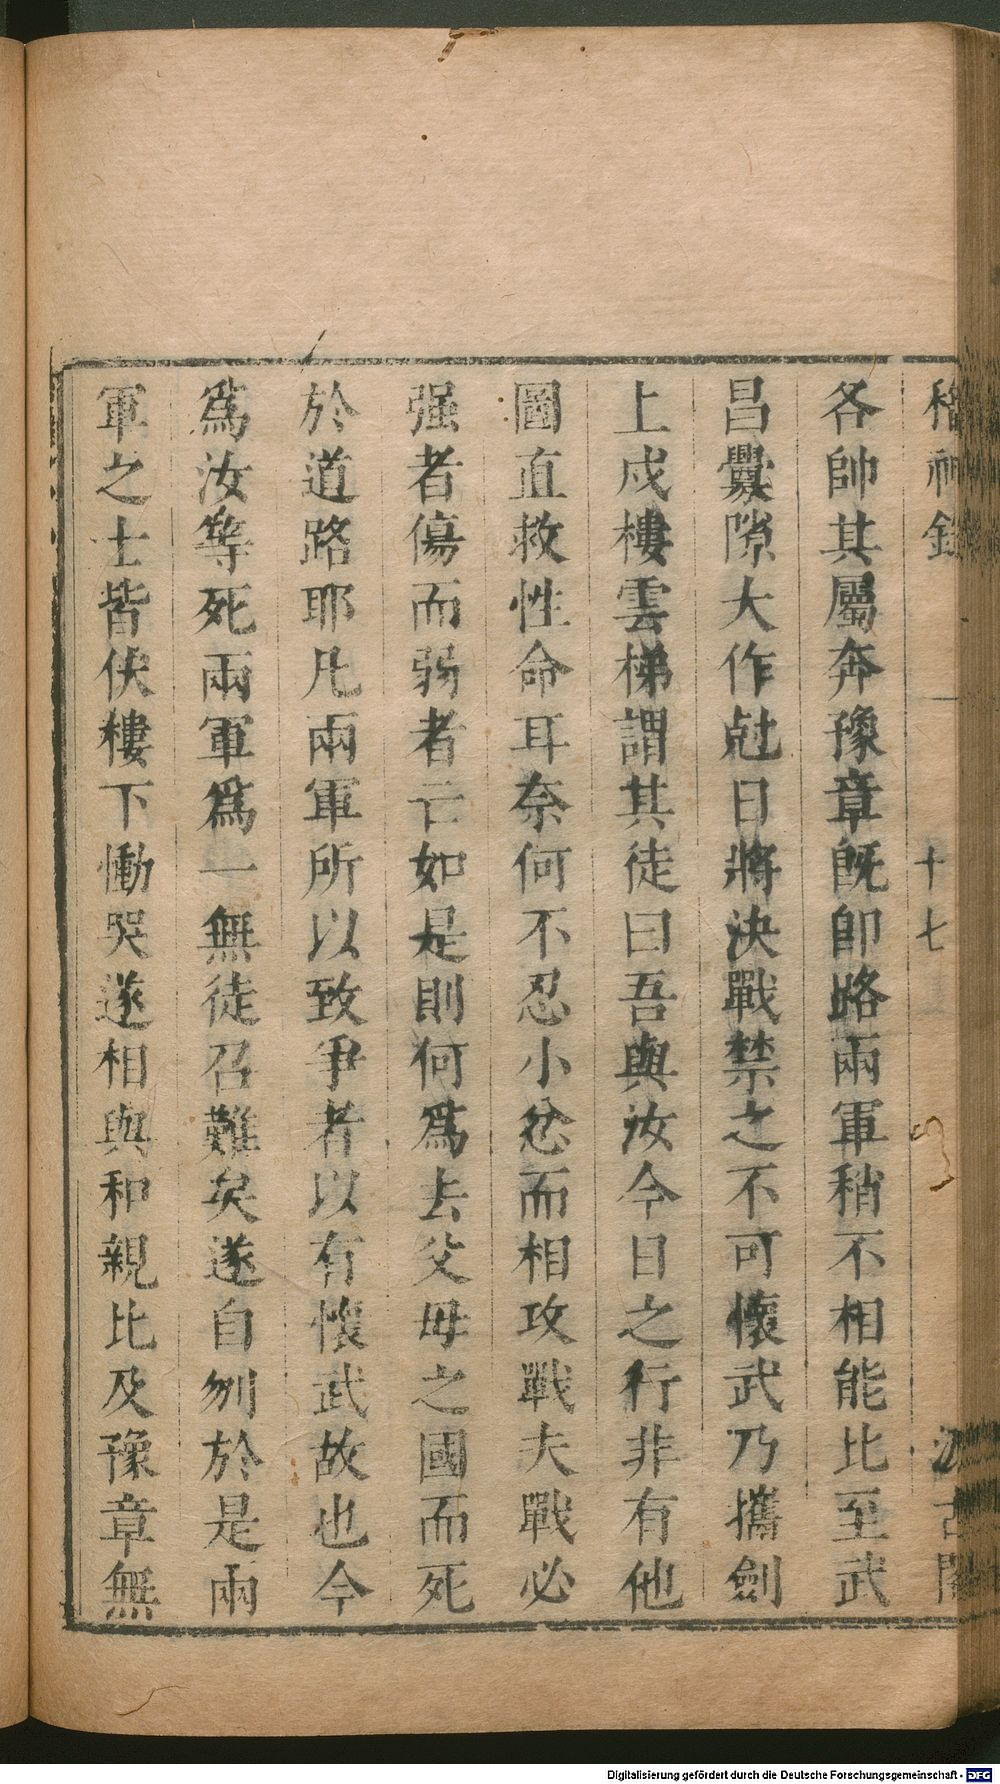 稽神錄 十七 汲古閣
各帥其屬奔豫章旣卽路兩軍稍不相能比至武
昌釁隙大作尅日將決戰禁之不可懷武乃攜劍
上戍樓雲梯謂其徒曰吾與汝今日之行非有他
圖直救性命耳奈何不忍小忿而相攻戰夫戰必
强者傷而弱者亡如是則何爲去父母之國而死
於道路耶凡兩軍所以致爭者以有懷武故也今
爲汝等死兩軍爲一無徒召難矣遂自刎於是兩
軍之士皆伏樓下慟哭遂相與和親比及豫章無
Digitalisierung gefördert durch die Deutsche Forschungsgemeinschaft - DFG